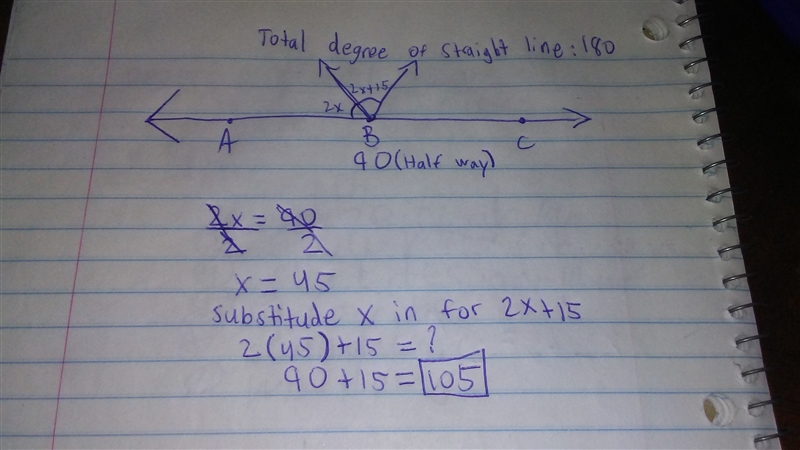 Total degree of staight line: 180
2x+15
2x
A
B
C
90 (Half way)
2x = 90
2 2
x = 45
substitude x in for 2x+15
2(45)+15 = ?
90+15 = 105